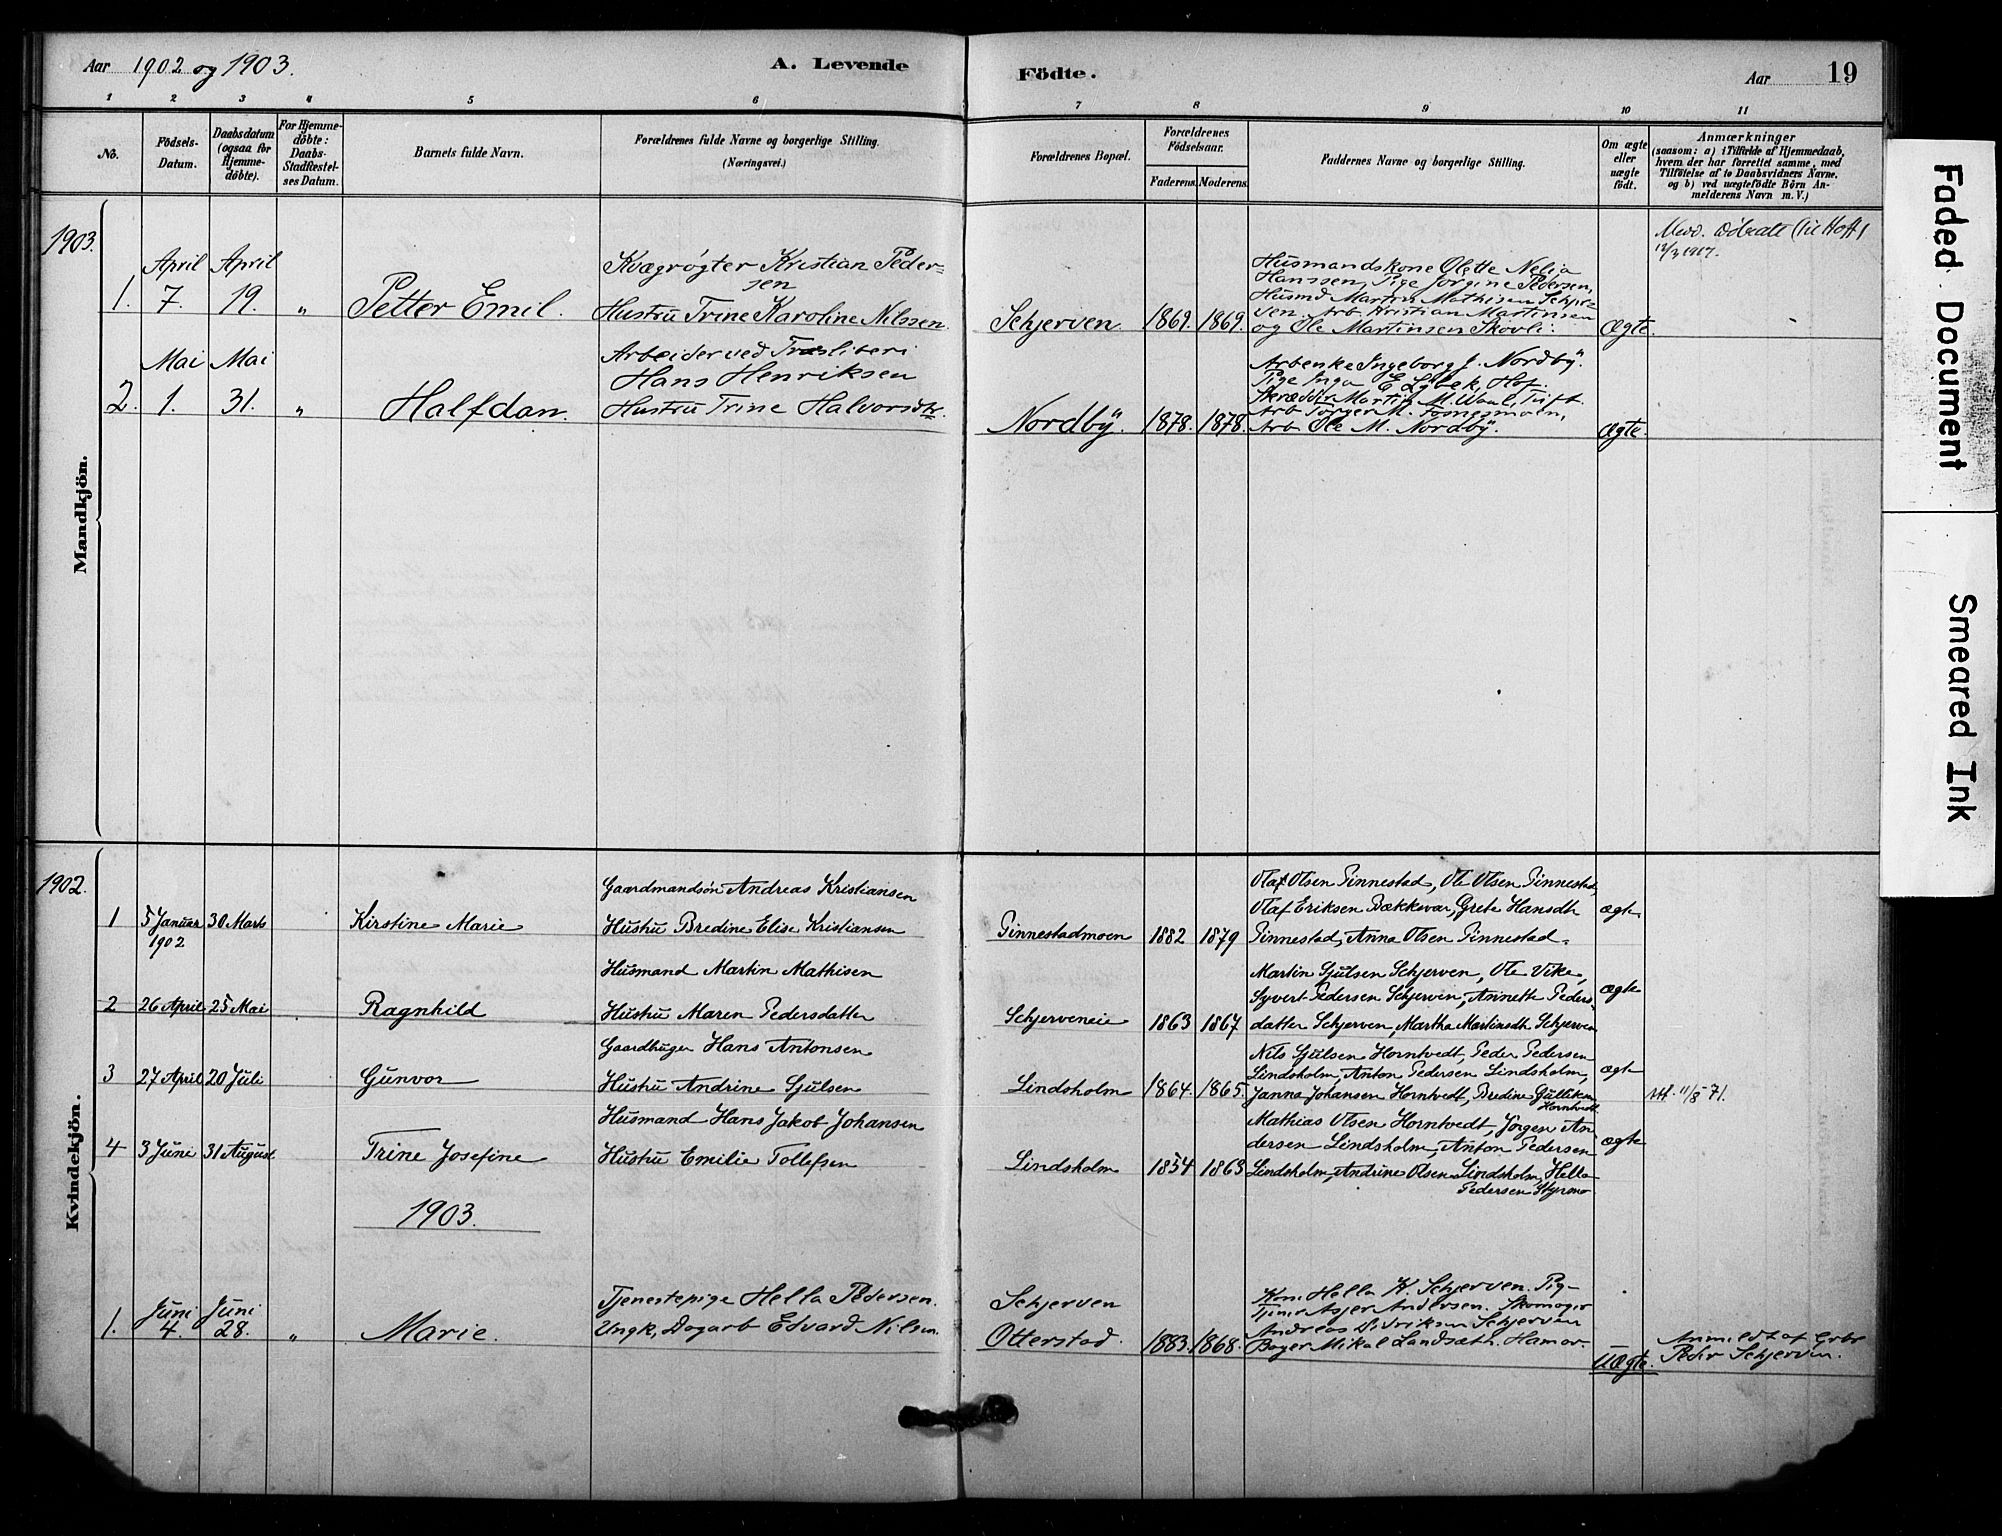 Aar 1902 og 1903.
A. Levende Födte.
Aar 19
1 2 3 4 5 6 7 8 9 10 11
No.
Födsels-Datum.
Daabsdatum (ogsaa for Hjemme-döbte).
For Hjemme-döbte: Daabs-Stadfæstel-ses Datum.
Barnets fulde Navn.
Forældrenes fulde Navne og borgerlige Stilling.
(Næringsvei.)
Forældrenes Bopæl.
Forældrenes Födselsaar.
Faderens. Moderens.
Faddernes Navne og borgerlige Stilling.
Om ægte eller uægte födt.
Anmærkninger
(saasom: a) i Tilfælde af Hjemmedaab,
hvem der har forrettet samme, med
Tilföielse af to Daabsvidners Navne,
og b) ved uægtefödte Börn An-
melderens Navn m.V.)
Mandkjön.
1903.
1.
April 7.
April 19.
"
Petter Emil.
Kvægrøgter Kristian Peder-
sen
Hustru Trine Karoline Nilssen.
Schjerven.
1869. 1869.
Husmandskone Olette Nelia
Hanssen, Pige Jørgine Pedersen,
Husmd Martin Mathisen Schjer-
ven. Arb. Kristian Martinsen
og Ole Martinsen Skovli.
Ægte.
12/3 1917.
2.
Mai 1.
Mai 31.
"
Halfdan.
Arbeider ved Træsliberi
Hans Henriksen
Hustru Trine Halvorsdtr.
Nordbÿ.
1878. 1878.
Arbenke Ingeborg J. Nordbÿ.
Pige Inga E. Lybek, Hof.
Skrædder Martin M. Tuft.
Arb Torger M.
Arb Ole M. Nordbÿ.
Ægte.
Kvindekjön.
1902.
1
5 Januar
1902
30 Marts
Kirstine Marie
Gaardmandsøn Andreas Kristiansen
Hustru Bredine Elise Kristiansen
Tinnestadmoen
1882 1879
Olaf Olsen Tinnestad, Ole Olsen Tinnestad,
Olaf Eriksen Bækkevar, Grete Hansdtr
Tinnestad, Anna Olsen Tinnestad.
ægte
2
26 April
25 Mai
Ragnhild
Husmand Martin Mathisen
Hustru Maren Pedersdatter
Schjerveneie
1863 1867
Martin Gjulsen Schjerven, Ole Vike,
Syvert Pedersen Schjerven, Annette Peders-
datter Schjerven, Martha Martinsdtr Schjerven
ægte
3
27 April
20 Juli
Gunvor
Gaardbruger Hans Antonsen
Hustru Andrine Gjulsen
Lindsholm
1864. 1865.
Nils Gjulsen Horntvedt, Peder Pedersen
Lindsholm, Anton Pedersen Lindsholm,
Janna Johansen Horntvedt, Bredine Gulliksen
Horntvedt
ægte
Att. 11/8 71.
4
3 Juni
31 August
Trine Josefine
Husmand Hans Jakob Johansen
Hustru Emilie Tollefsen
Lindsholm
1854 1863
Mathias Olsen Horntvedt, Jörgen An-
dersen Lindsholm, Anton Pedersen
Lindsholm, Andrine Olsen Lindsholm, Hella
Pedersen Styrmo
ægte
1903.
1.
Juni 4.
Juni 28.
"
Marie.
Tjenestepige Hella Pedersen.
Ungk, Dagarb Edvard Nilsen.
Schjerven
Otterstad.
1883. 1868.
Kone Hella K. Schjerven. Pige
Asjer Andersen. Skomager
Andreas Schjerven
Mikal Hamar.
Uægte.
Anmeldt af Grbr
Peder Schjerven.
Faded Document
Smeared Ink